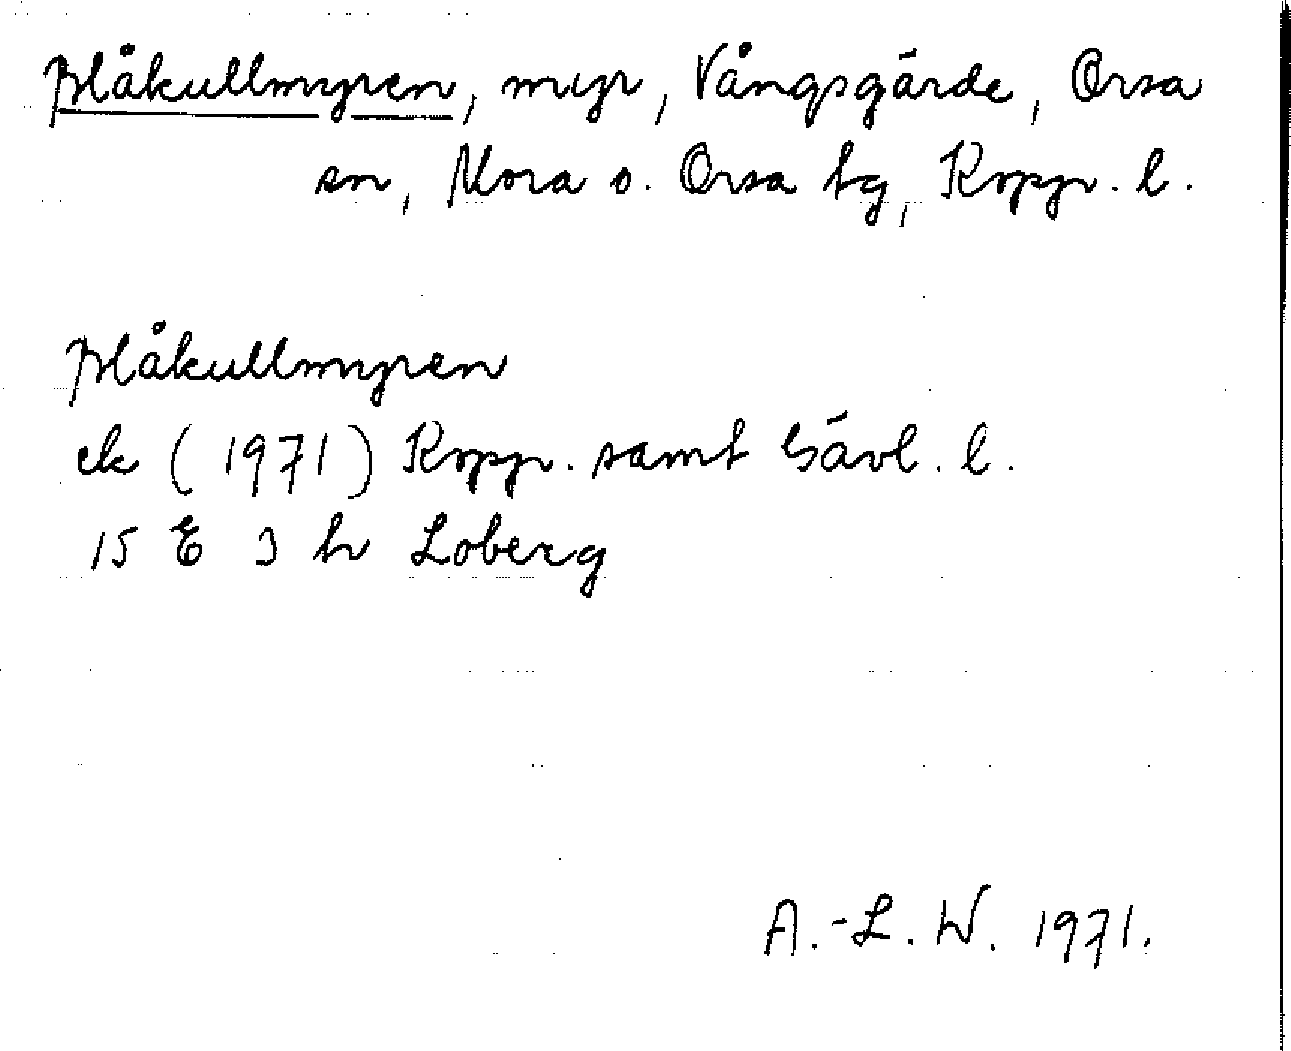 Blåkullmyren, myr, Vångsgärde, Orsa
sn, Mora o. Orsa tg, Kopp. l.
Blåkullmyren
ek (1971) Kopp. samt Gävl. l.
15 E 3 h Loberg
A.-L. W. 1971.